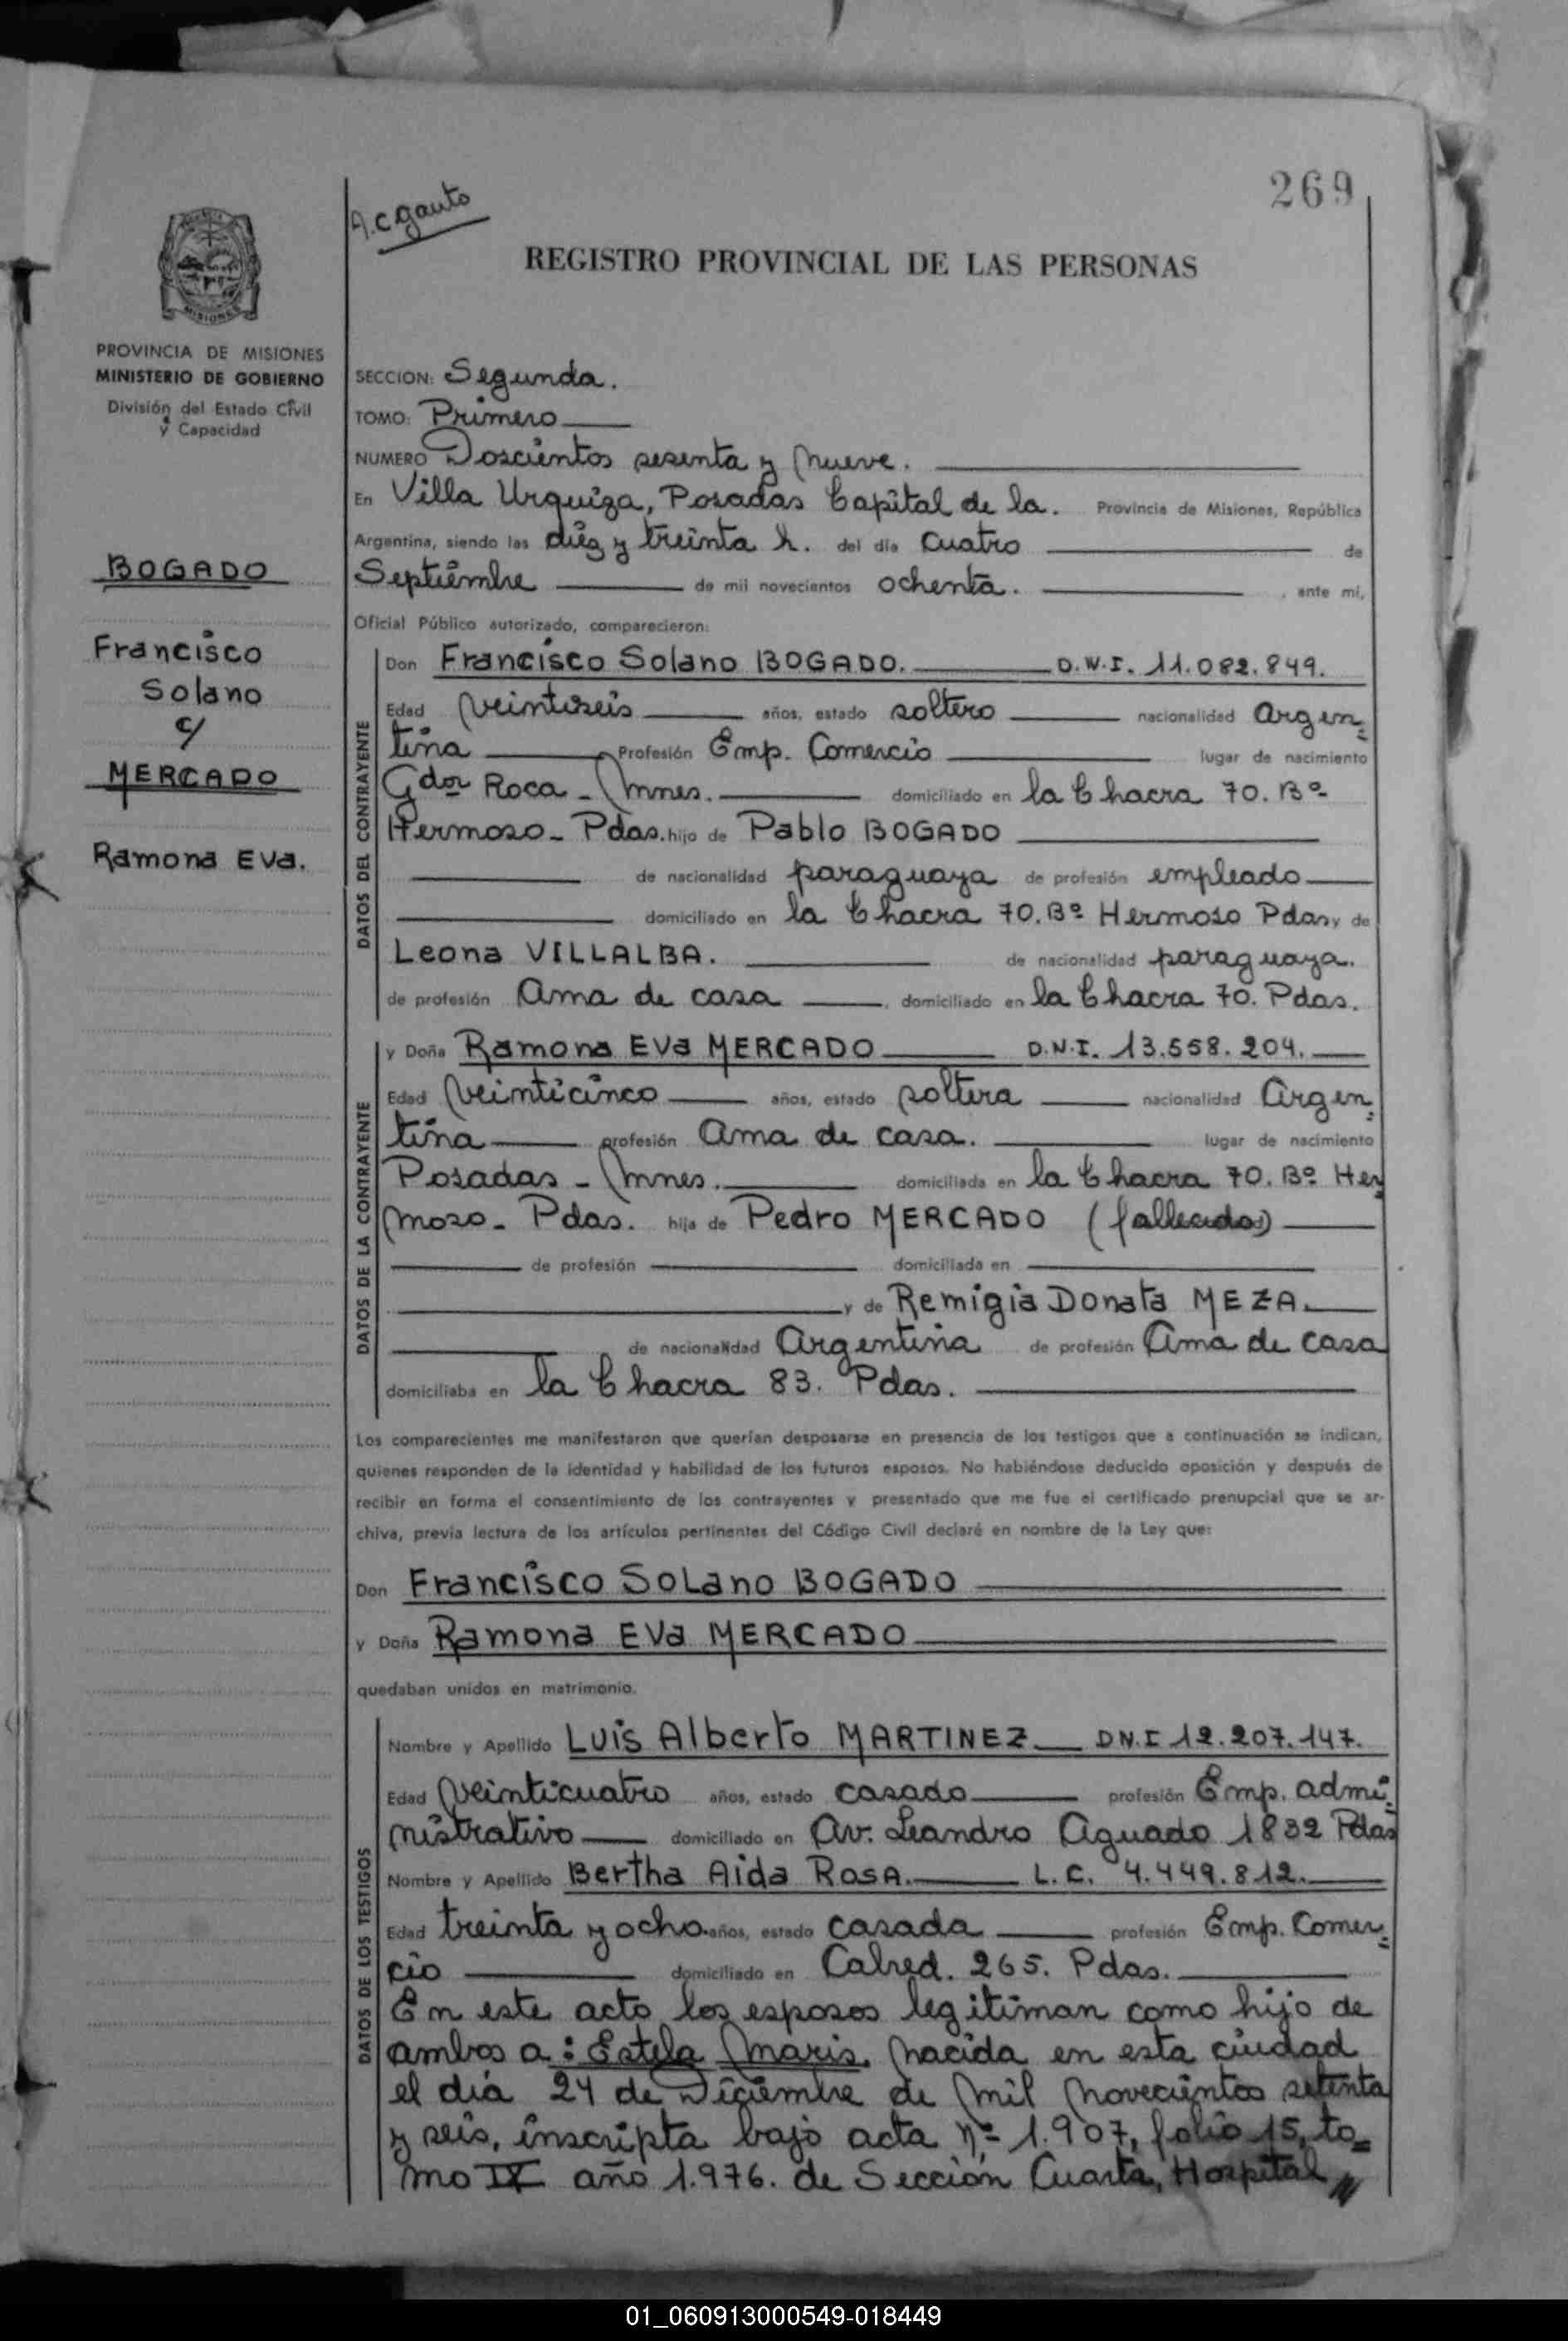 269
A.C. gauto
REGISTRO PROVINCIAL DE LAS PERSONAS
MISIONES
PROVINCIA DE MISIONES
MINISTERIO DE GOBIERNO
División del Estado Civil
y Capacidad
BOGADO
Francisco
Solano
c/
MERCADO
Ramona Eva.
SECCION: Segunda.
TOMO: Primero
NUMERO Doscientos sesenta y nueve.
En Villa Urquiza, Posadas Capital de la. Provincia de Misiones, República
Argentina, siendo las diez y treinta h. del día cuatro de
Septiembre de mil novecientos ochenta. , ante mí,
Oficial Público autorizado, comparecieron:
DATOS DEL CONTRAYENTE
Don Francisco Solano BOGADO. D.N.I. 11.082.849.
Edad veintiseis años, estado soltero nacionalidad Argen=
tina Profesión Emp. Comercio lugar de nacimiento
Gdor Roca - Mnes. domiciliado en la Chacra 70. Bº
Hermoso - Pdas. hijo de Pablo BOGADO
de nacionalidad paraguaya de profesión empleado
domiciliado en la Chacra 70. Bº Hermoso Pdas y de
Leona VILLALBA. de nacionalidad paraguaya.
de profesión Ama de casa , domiciliado en la Chacra 70. Pdas.
DATOS DE LA CONTRAYENTE
y Doña Ramona Eva MERCADO D.N.I. 13.558.204.
Edad veinticinco años, estado soltera nacionalidad Argen=
tina profesión Ama de casa. lugar de nacimiento
Posadas - Mnes. domiciliada en la Chacra 70. Bº Her
moso - Pdas. hija de Pedro MERCADO (fallecido)
de profesión domiciliada en
y de Remigia Donata MEZA.
de nacionalidad Argentina de profesión Ama de casa
domiciliaba en la Chacra 83. Pdas.
Los comparecientes me manifestaron que querían desposarse en presencia de los testigos que a continuación se indican,
quienes responden de la identidad y habilidad de los futuros esposos. No habiéndose deducido oposición y después de
recibir en forma el consentimiento de los contrayentes y presentado que me fue el certificado prenupcial que se ar-
chiva, previa lectura de los artículos pertinentes del Código Civil declaré en nombre de la Ley que:
Don Francisco Solano BOGADO
y Doña Ramona Eva MERCADO
quedaban unidos en matrimonio.
DATOS DE LOS TESTIGOS
Nombre y Apellido Luis Alberto MARTINEZ DN.I 12.207.147.
Edad veinticuatro años, estado casado profesión Emp. admi=
nistrativo domiciliado en Av. Leandro Aguado 1832 Pdas
Nombre y Apellido Bertha Aida ROSA. L.C. 4.449.812.
Edad treinta y ocho. años, estado casada profesión Emp. Comer=
cio domiciliado en Calred. 265. Pdas.
En este acto los esposos legitiman como hijo de
ambos a: Estela Maris, nacida en esta ciudad
el día 24 de Diciembre de mil novecientos setenta
y seis, inscripta bajo acta nº 1.907, folio 15, to=
mo IX año 1.976. de Sección Cuarta, Hospital
01_060913000549-018449